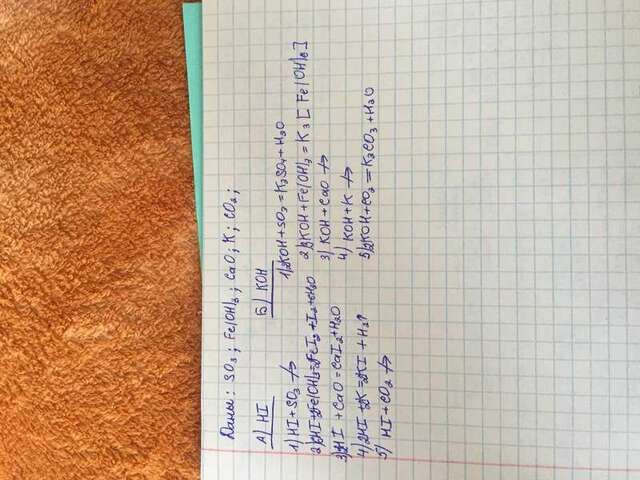 Даны: SO3; Fe(OH)3; CaO; K; CO2;
А) HI
1) HI + SO3 ↛
2) 6HI + 2Fe(OH)3 = 2FeI2 + I2 + 6H2O
3) 2HI + CaO = CaI2 + H2O
4) 2HI + 2K = 2KI + H2↑
5) HI + CO2 ↛
Б) KOH
1) 2KOH + SO3 = K2SO4 + H2O
2) 3KOH + Fe(OH)3 = K3[Fe(OH)6]
3) KOH + CaO ↛
4) KOH + K ↛
5) 2KOH + CO2 = K2CO3 + H2O